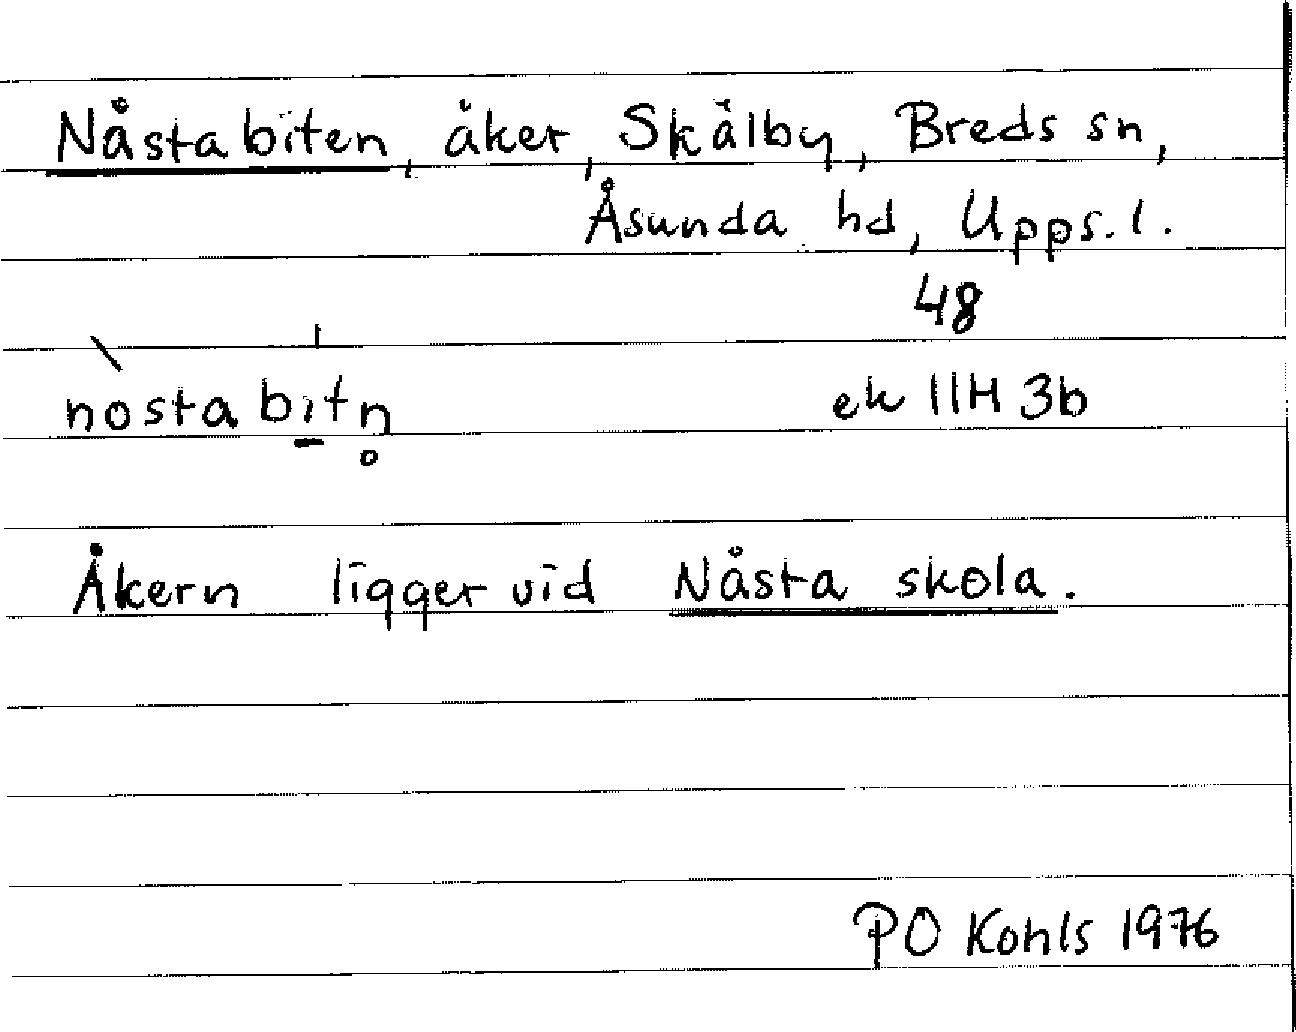 Nåstabiten, åker, Skälby, Breds sn,
Åsunda hd, Upps. l.
48
nòstabı̱́tn̥ ek 11H 3b
Åkern ligger vid Nåsta skola.
PO Kohls 1976